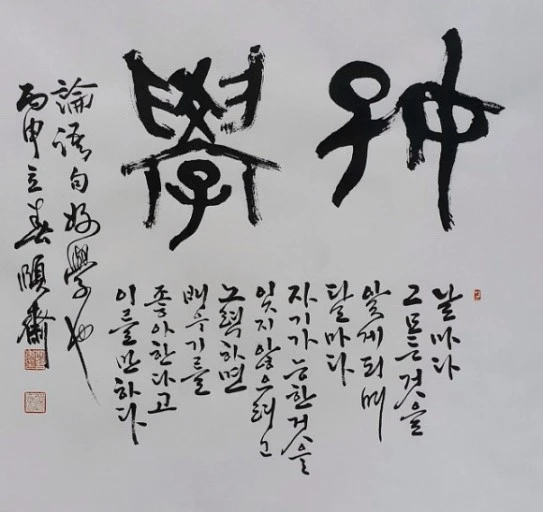 好學
날마다
그 모든것을
알게되며
달마다
자기가 능한것을
잊지않으려고
노력하면
배우기를
좋아한다고
이를만하다
論語句 好學也
丙申立春 頤齋